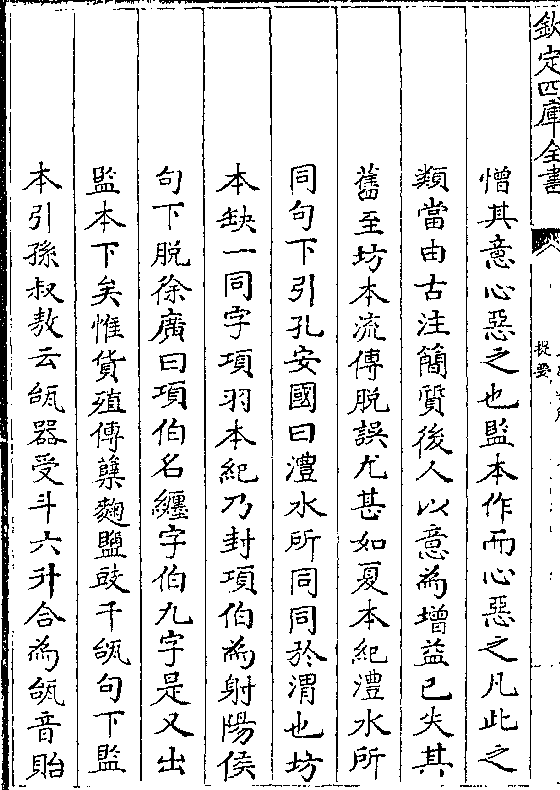 欽定四庫全書
提要
憎其意心惡之也監本作而心惡之凡此之
類當由古注簡質後人以意為增益已失其
舊至坊本流傳脱誤尤甚如夏本紀澧水所
同句下引孔安國曰澧水所同同於渭也坊
本缺一同字項羽本紀乃封項伯為射陽侯
句下脱徐廣曰項伯名纏字伯九字是又出
監本下矣惟貨殖傳糵麴鹽豉千瓵句下監
本引孫叔敖云瓵器受斗六升合為瓵音貽